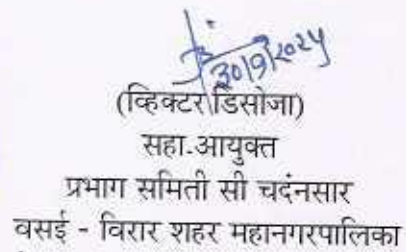 30/9/2024
(व्हिक्टर डिसोजा)
सहा.आयुक्त
प्रभाग समिती सी चदंनसार
वसई - विरार शहर महानगरपालिका